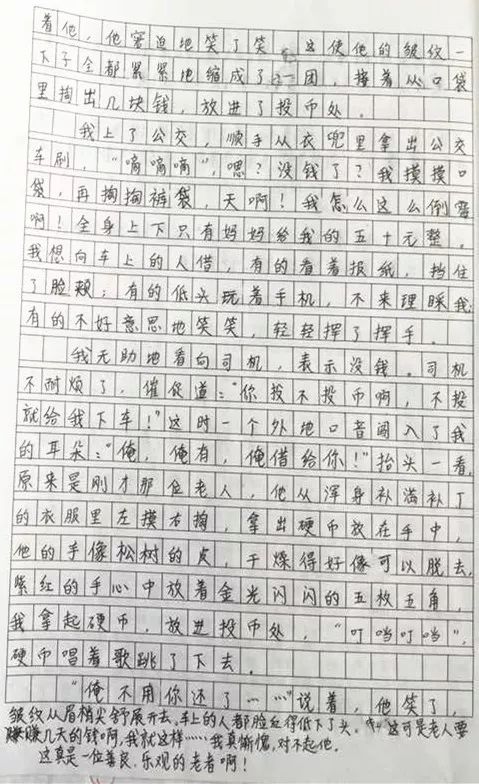 着他，他窘迫地笑了笑，这使他的皱纹一
下子全都紧紧地缩成了一团，接着从口袋
里掏出几块钱，放进了投币处。
我上了公交，顺手从衣兜里拿出公交
车刷，“嘀嘀嘀”，嗯？没钱了？我摸摸口
袋，再掏掏裤袋，天啊！我怎么这么倒霉
啊！全身上下只有妈妈给我的五十元整。
我想向车上的人借，有的看着报纸，挡住
了脸颊；有的低头玩着手机，不来理睬我；
有的不好意思地笑笑，轻轻挥了挥手。
我无助地看向司机，表示没钱。司机
不耐烦了，催促道：“你投不投币啊，不投
就给我下车！”这时一个外地口音闯入了我
的耳朵：“俺，俺有，俺借给你！”抬头一看，
原来是刚才那位老人，他从浑身补满补丁
的衣服里左摸右掏，拿出硬币放在手中，
他的手像松树的皮，干燥得好像可以脱去，
紫红的手心中放着金光闪闪的五枚五角，
我拿起硬币，放进投币处，“叮当叮当”，
硬币唱着歌跳了下去。
“俺不用你还了……”说着，他笑了，
皱纹从眉梢尖舒展开去，车上的人都脸红得低下了头。这可是老人要
赚几天的钱啊，我就这样……我真惭愧，对不起他。
这真是一位善良、乐观的老者啊！